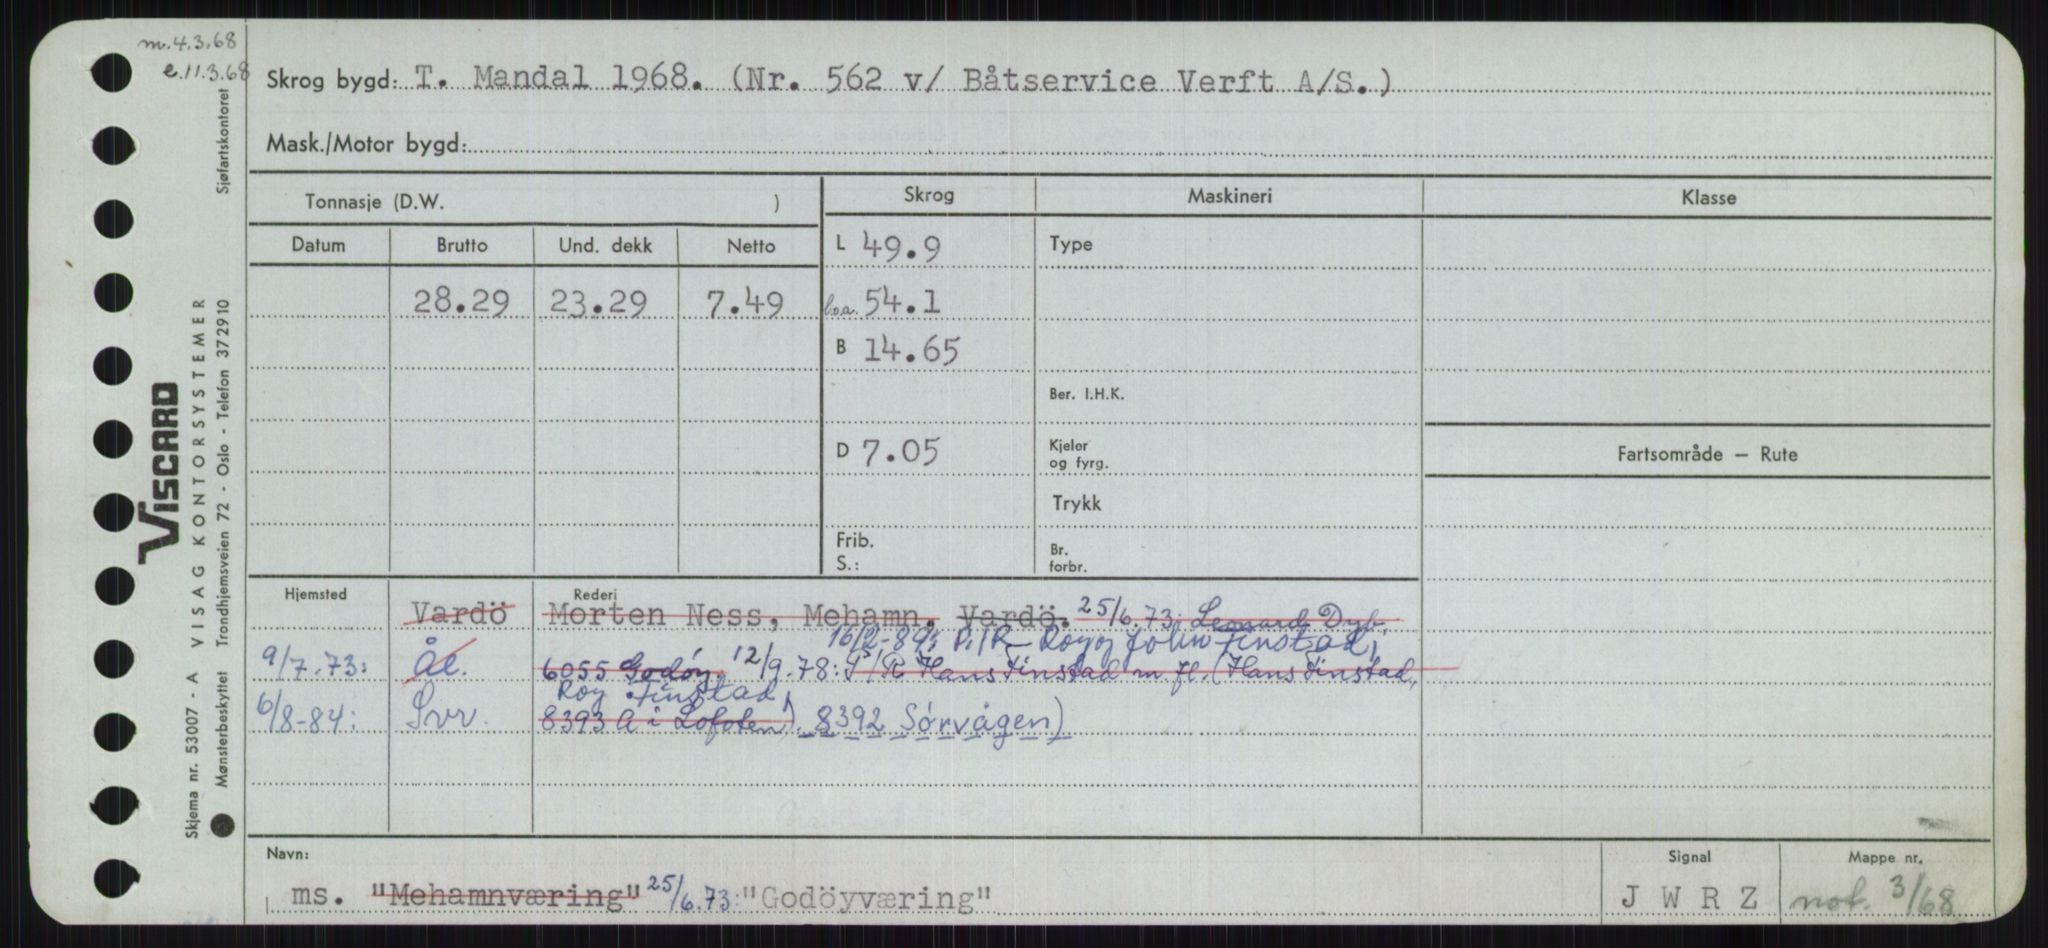 m. 4.3.68
e. 11.3.68
Skrog bygd: T. Mandal 1968. (Nr. 562 v/ Båtservice Verft A/S.)
Mask./Motor bygd:
Tonnasje (D.W. )
Skrog
Maskineri
Klasse
Datum Brutto Und. dekk Netto
L 49.9
Type
28.29 23.29 7.49
l.o.a. 54.1
B 14.65
Ber. I.H.K.
D 7.05
Kjeler
og fyrg.
Fartsområde — Rute
Trykk
Frib.
S.:
Br.
forbr.
Hjemsted
Rederi
Vardö Morten Ness, Mehamn, Vardö. 25/6.73: Leonard Dyb,
16/2-89: P/R Roy og John Finstad,
9/7.73: Ål. 6055 Godøy, 12/9.78: P/R Hans Finstad m.fl. (Hans Finstad,
Roy Finstad,
6/8-84: Svv. 8393 Å i Lofoten) 8392 Sørvågen)
Navn:
ms. "Mehamnværing" 25/6.73: "Godöyværing"
Signal
J W R Z
Mappe nr.
not. 3/68
Skjema nr. 53007 - A VISAG KONTORSYSTEMER
VISCARD
Mønsterbeskyttet Trondhjemsveien 72 - Oslo - Telefon 372910 Sjøfartskontoret